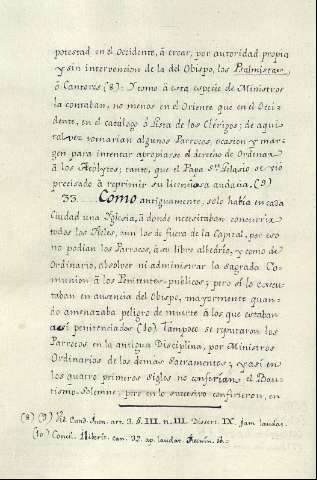 potestad en el Occidente, á crear, por autoridad propia
y sin intervencion de la del Obispo, los Psalmistas
ó Cantores (8): Y como á esta especie de Ministros
la contaban, no menos en el Oriente que en el Occi-
dente, en el catálogo ó lista de los Clérigos; de aqui
tal vez tomarian algunos Parrocos, ocasion y mar-
gen para intentar apropiarse el derecho de Ordenar
á los Acólytos; tanto, que el Papa Sn. Gelasio se vió
precisado á reprimir su licenciosa audacia. (9)
33.....Como antiguamente, solo habia en cada
Ciudad una Iglesia, á donde necesitaban concurrir
todos los fieles, aun los de fuera de la Capital, por eso
no podian los Parrocos, á su libre albedrio, y como de
Ordinario, absolver ni administrar la sagrada Co-
munion á los Penitentes publicos; pero si lo execu-
taban en ausencia del Obispo, mayormente quan-
do amenazaba peligro de muerte á los que estaban
asi penitenciados (10). Tampoco se reputaron los
Parrocos en la antigua Disciplina, por Ministros
Ordinarios de los demas Sacramentos; y casi en
los quatro primeros siglos no conferian el Bau-
tismo Solemne; pero en lo succesivo confirieron, en
(8) (9) Vid. Cond. art. 3. §. III. n. III. Disert. IX. jam laudat.
(10) Concil. Iliberit. can. 32. ap. laudat.